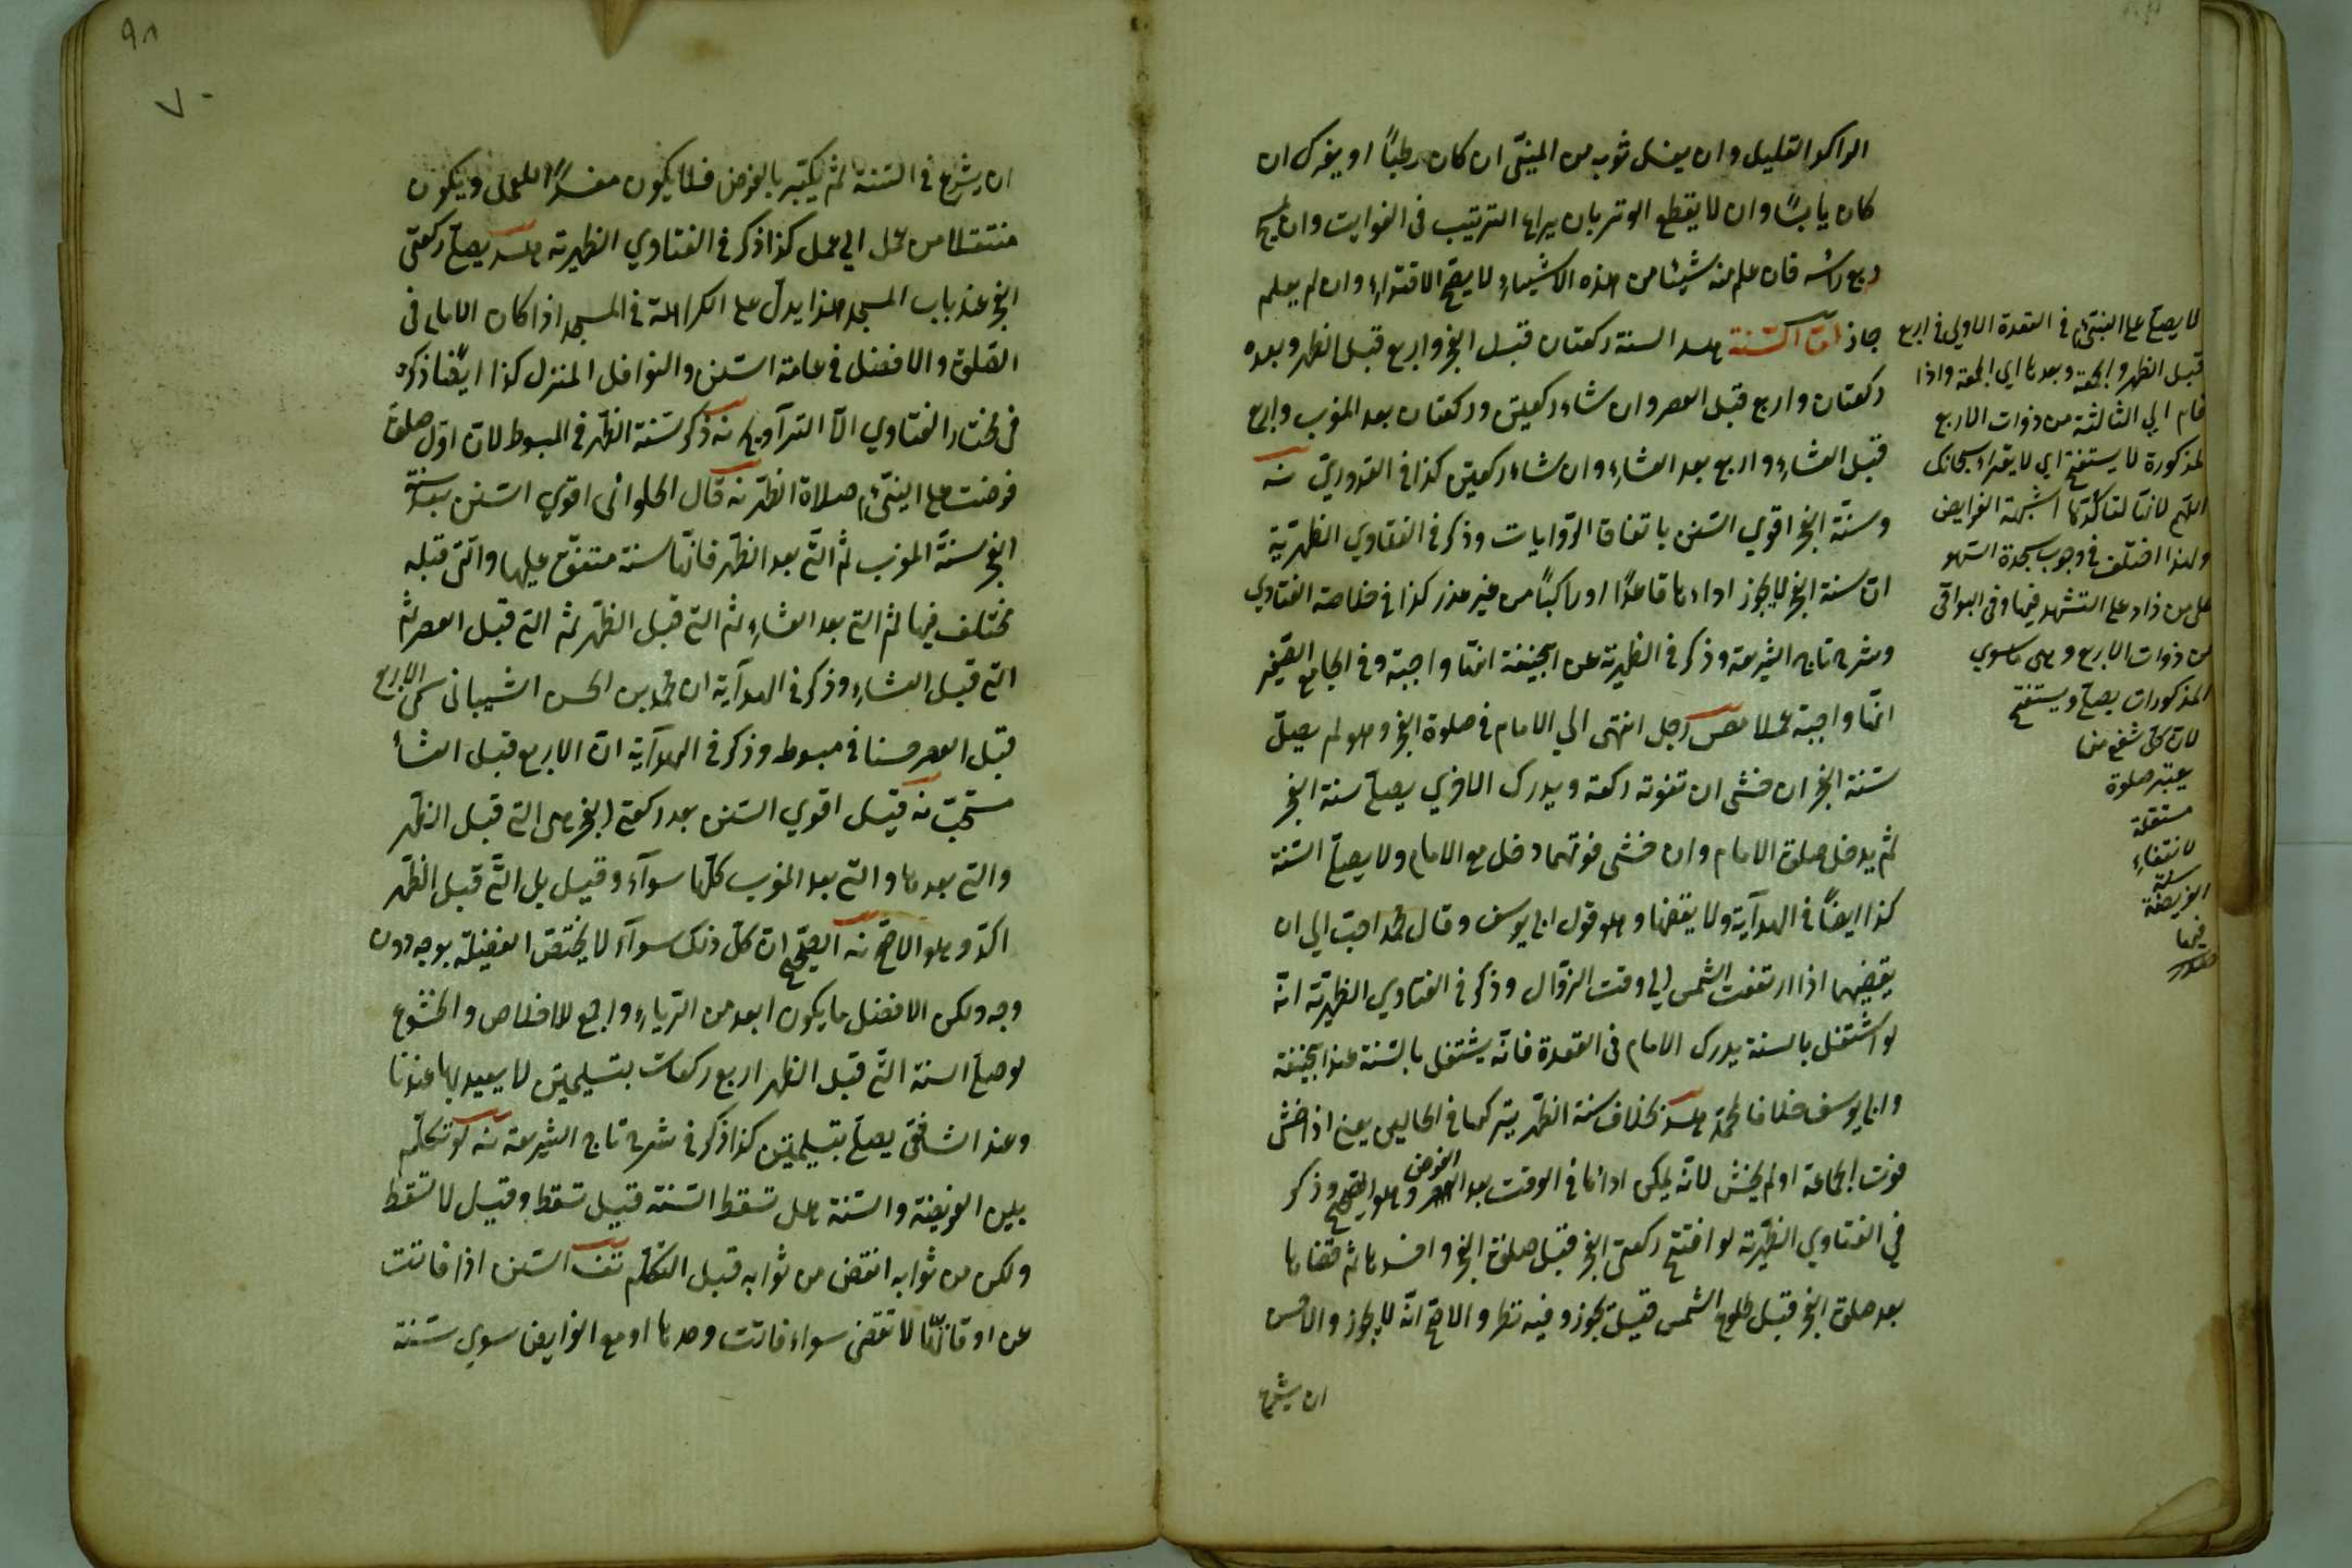 الراكد القليل وان يغسل ثوبه من المنيّ ان كان رطبًا او يفرك ان
كان يابسًا وان لا يقطع الوتر بان يراها الترتيب فى الفوايت وان يمسح
ربع رأسه فان علم منه شيئا من هذه الاشياء لا يصح الاقتداء وان لم يعلم
جاز امّا السّنة هد السنة ركعتان قبل الفجر واربع قبل الظهر وبعده
ركعتان واربع قبل العصر وان شاء ركعتين وركعتان بعد المغرب واربع
قبل العشاء واربع بعد العشاء وان شاء ركعتين كذا فى القدوريّ نه
وسنّة الفجر اقوي السّنن باتفاق الرّوايات وذكر فى الفتاوي الظهيريّة
انّ سنة الفجر لا يجوز اداءها قاعدًا او راكبًا من غير عذر كذا فى خلاصة الفتاوي
وشرح تاج الشريعة وذكر فى الظهيرية عن ابيحنيفة انّها واجبة وفى الجامع الصّغير
انّها واجبة عملا رجل انتهى الي الامام فى صلوة الفجر وهو لم يصلّ
سنّة الفجر ان خشى ان تفوته ركعة ويدرك الاخري يصلّي سنة الفجر
ثم يدخل صلوة الامام وان خشى فوتهما دخل مع الامام ولا يصلّي السّنة
كذا ايضًا فى الهدآية ولا يقضها وهو قول ابى يوسف وقال محمد احبّ الي ان
يقضيهما اذا ارتفعت الشمس الي وقت الزّوال وذكر فى الفتاوي الظهيريّة انّه
لو اشتغل بالسنة يدرك الامام فى القعدة فانّه يشتغل بالسّنة عند ابيحنيفة
وابى يوسف خلافا لمحمّد هد بخلاف سنة الظهر يتركها فى الحالين يعني اذا خشى
فوت الجماعة او لم يخش لانّه يمكن اداؤها فى الوقت بعد الفرض وهو الصّحيح وذكر
في الفتاوي الظهيريّة لو افتتح ركعتى الفجر قبل صلوة الفجر وافسدها ثم قضاها
بعد صلوة الفجر قبل طلوع الشمس قيل يجوز وفيه نظر والاصحّ انّه لا يجوز والاحسن
ان يشرع
لا يصلّي على النبيّ م في القعدة الاولى فى اربع
قبل الظهر والجمعة وبعدها اي الجمعة واذا
قام الي الثالثة من ذوات الاربع
المذكورة لا يستفتح اي لا يقراء سبحانك
اللهم لانّها لتأكّدها اشبهت الفرايض
ولهذا اختلف فى وجوب سجدة السّهو
على من زاد على التشهد فيها وفى البواقى
من ذوات الاربع وهى ما سوي
المذكورات يصلّي ويستفتح
لانّ كلّ شفع منها
يعتبر صلوة
مستقلة
لانتفاء
شبهة
الفريضة
فيها
ان يشرع فى السّنة ثم يكبّر بالفرض فلا يكون مفسدًا للعمل ويكون
منتقلا من عمل الي عمل كذا ذكر فى الفتاوي الظهيريّة هد يصلّي ركعتى
الفجر عند باب المسجد هذا يدلّ على الكراهة فى المسجد اذا كان الامام فى
الصّلوة والافضل فى عامة السّنن والنوافل المنزل كذا ايضًا ذكره
فى مختار الفتاوي الّا التّرآويح نه ذكر سّنة الظهر فى المبسوط لانّ اوّل صلوة
فرضت على النبيّ م صلاة الظهر نه قال الحلوانى اقوي السّنن بعد سنّة
الفجر سنّة المغرب ثم التّي بعد الظّهر فانّها سنة متفق عليها والتى قبله
مختلف فيها ثم التي بعد العشاء ثم التي قبل الظّهر ثم التي قبل العصر ثم
التي قبل العشاء وذكر فى الهدآية ان محمد بن الحسن الشيبانى سمّى الاربع
قبل العصر حسنا فى مبسوط وذكر فى الهدآية انّ الاربع قبل العشاء
مستحبّ نه قيل اقوي السّنن بعد ركعتى الفجر هى التي قبل الظهر
والتي بعدها والتي بعد المغرب كلّها سوآء وقيل بل التّي قبل الظّهر
اكد وهو الاصحّ نه الصحيح انّ كلّ ذلك سوآء لا يختصّ الفضيلة بوجه دون
وجه ولكن الافضل ما يكون ابعد من الرّياء واجمع للاخلاص والخشوع
لو صلّي السنة التّي قبل الظهر اربع ركعات بتسليمتين لا يعيد بها عندنا
وعند الشافعى يصلّي بتسليمتين كذا ذكر فى شرح تاج الشريعة نه لو تكلّم
بين الفريضة والسّنة هل تسقط السّنة قيل تسقط وقيل لا تسقط
ولكن من ثوابه انقص من ثوابه قبل التكلّم السّنن اذا فاتت
عن اوقاتها لا تقضى سواء فاتت وحدها او مع الفرايض سوي سّنة